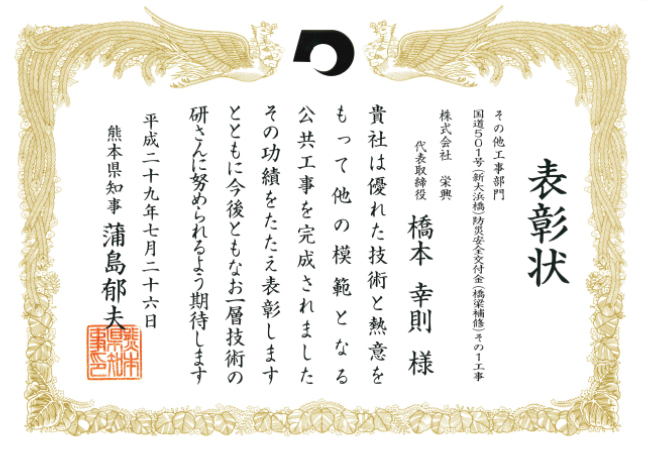 表彰状
その他工事部門
国道501号(新大浜橋)防災安全交付金(橋梁補修)その1工事
株式会社 栄興
代表取締役 橋本 幸則 様
貴社は優れた技術と熱意を
もって他の模範となる
公共工事を完成されました
その功績をたたえ表彰します
とともに今後ともなお一層技術の
研さんに努められるよう期待します
平成二十九年七月二十六日
熊本県知事 蒲島郁夫
熊本県知事印